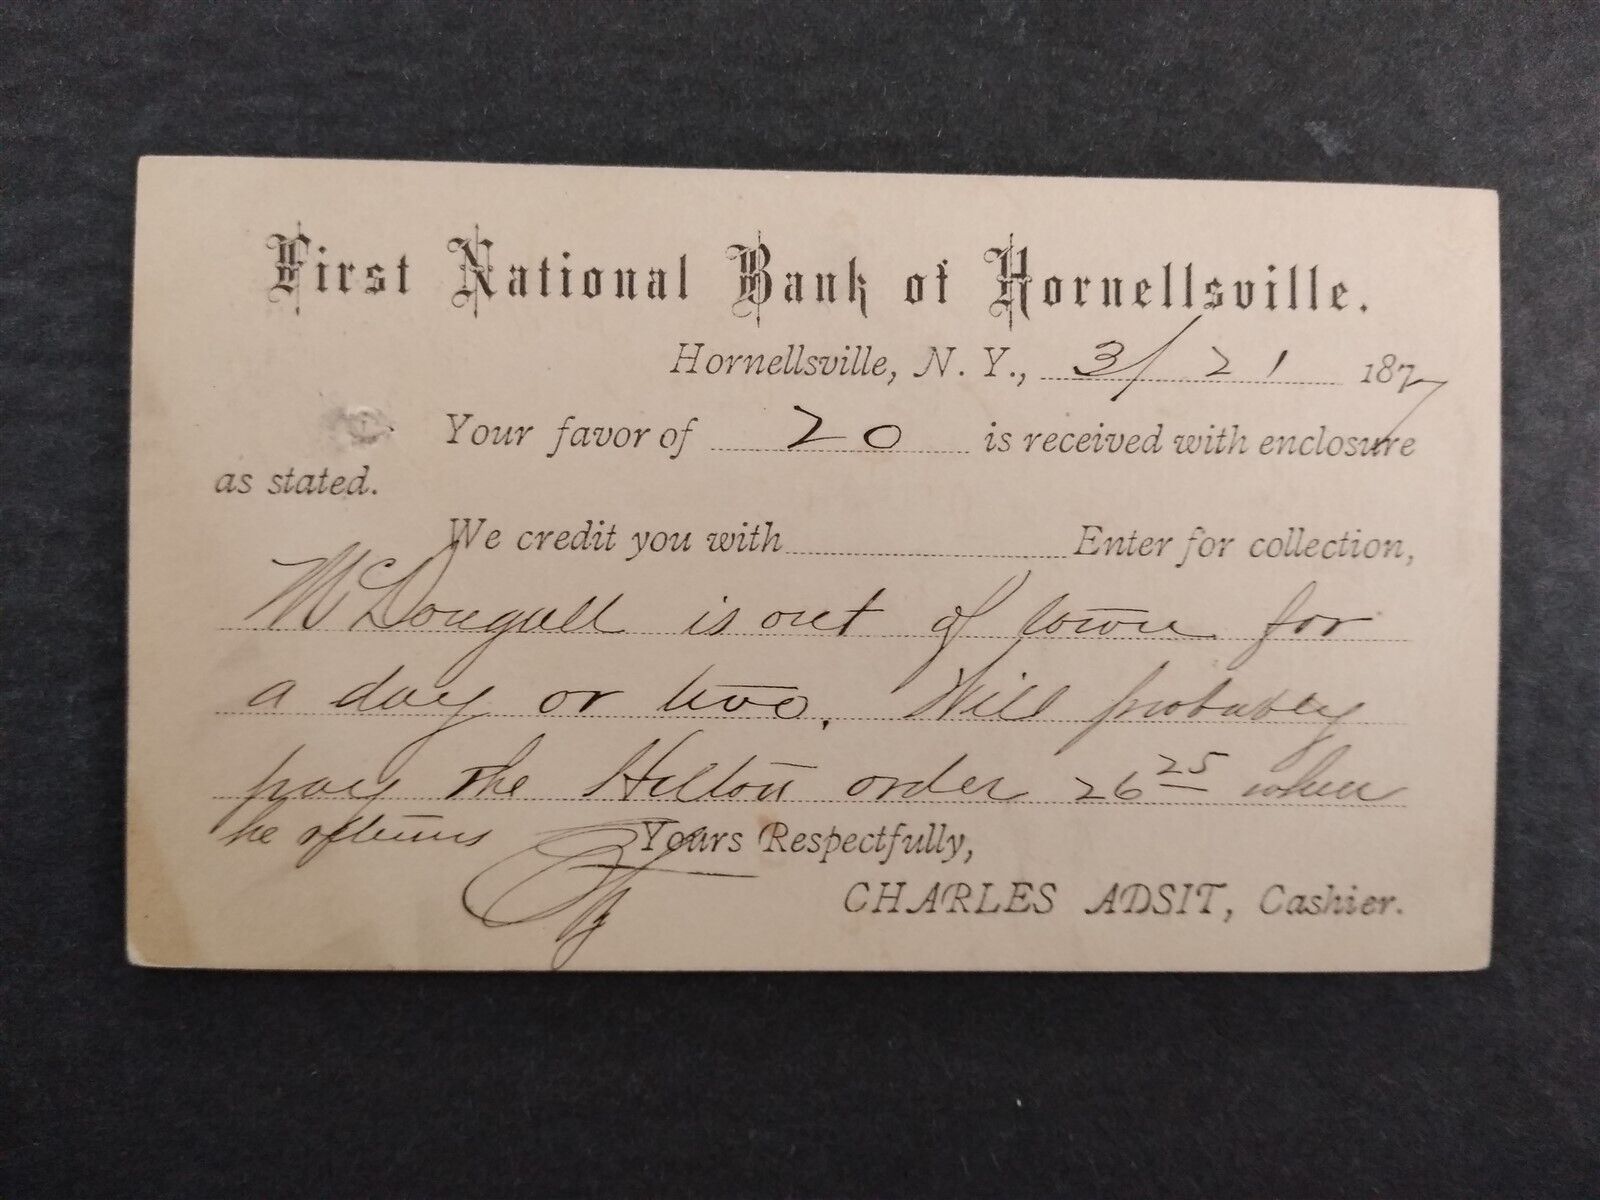 First National Bank of Hornellsville.
Hornellsville, N. Y., 3/21 1877
Your favor of 20 is received with enclosure
as stated.
We credit you with Enter for collection,
McDougall is out of town for
a day or two. Will probably
pay the Hilton order 26 25 when
he returns Yours Respectfully,
CHARLES ADSIT, Cashier.